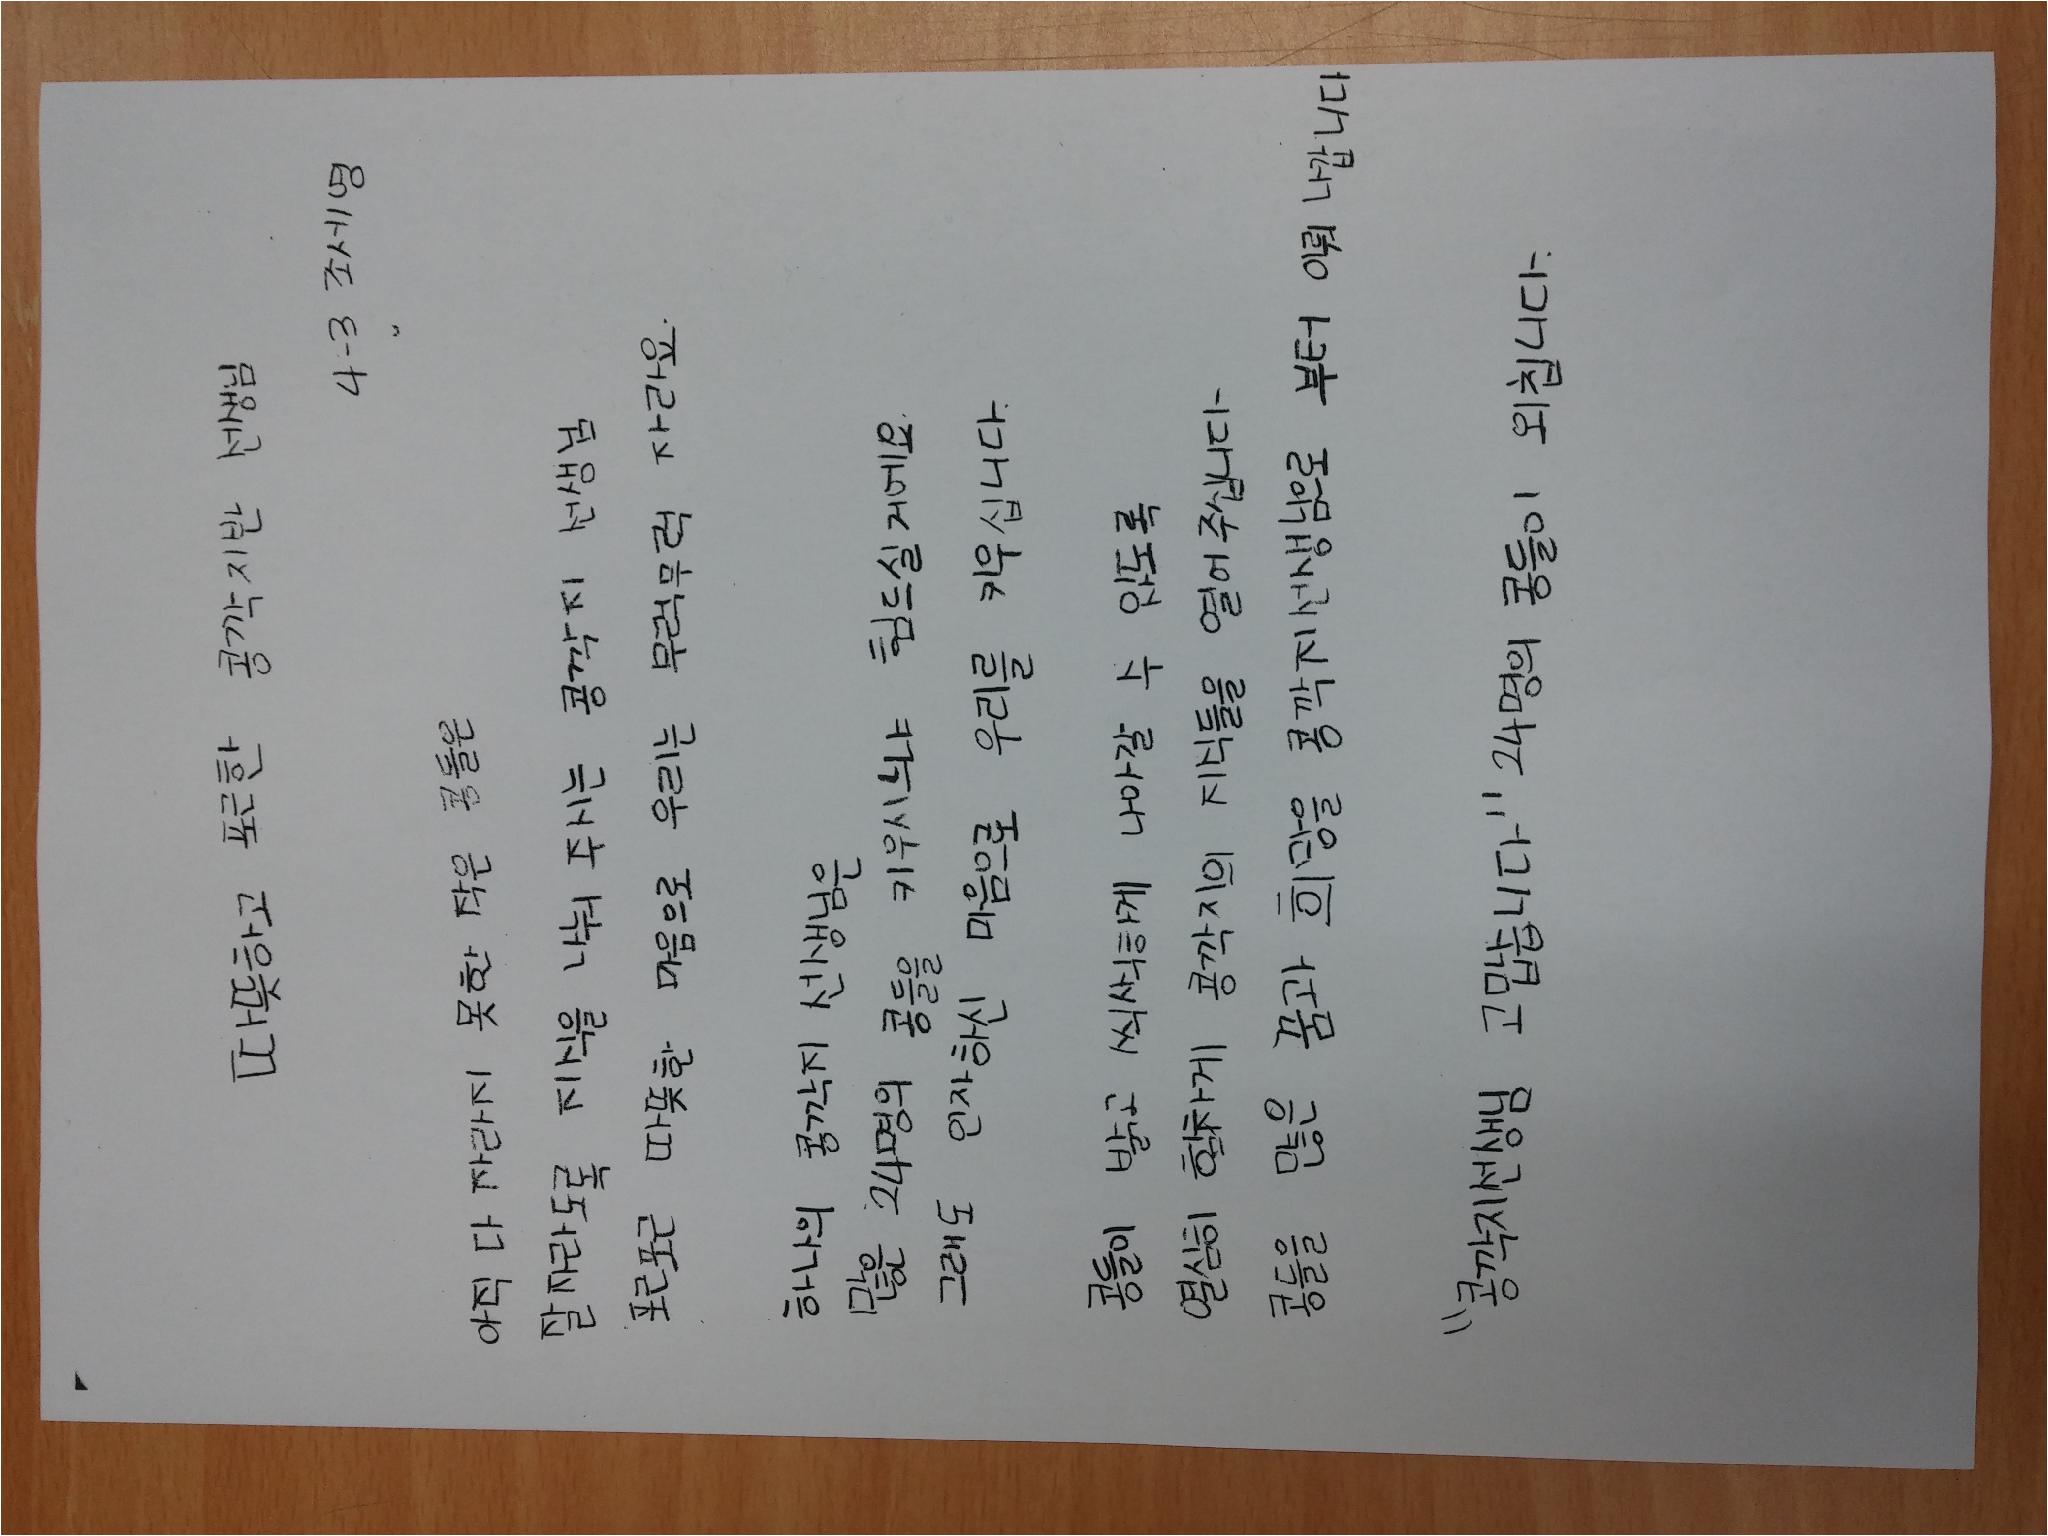 따뜻하고 포근한 콩깍지반 선생님
4-3 조세명
아직 다 자라지 못한 작은 콩들은
잘 자라도록 지식을 나눠 주시는 콩깍지 선생님
포근포근 따뜻한 마음으로 우리는 무럭무럭 자라요.
하나의 콩깍지 선생님은
많은 24명의 콩들을 키우시느냐 힘드실거에요.
그래도 인자하신 마음으로 우리를 키우십니다.
콩들이 밝고 씩씩하게 나아갈 수 있도록
열심히 힘차게 콩깍지의 지식들을 열어주십니다
콩들을 많은 꿈과 희망을 콩깍지선생님로부터 이뤄 나갑니다
"콩깍지선생님 고맙습니다" 24명의 콩들이 외칩니다.